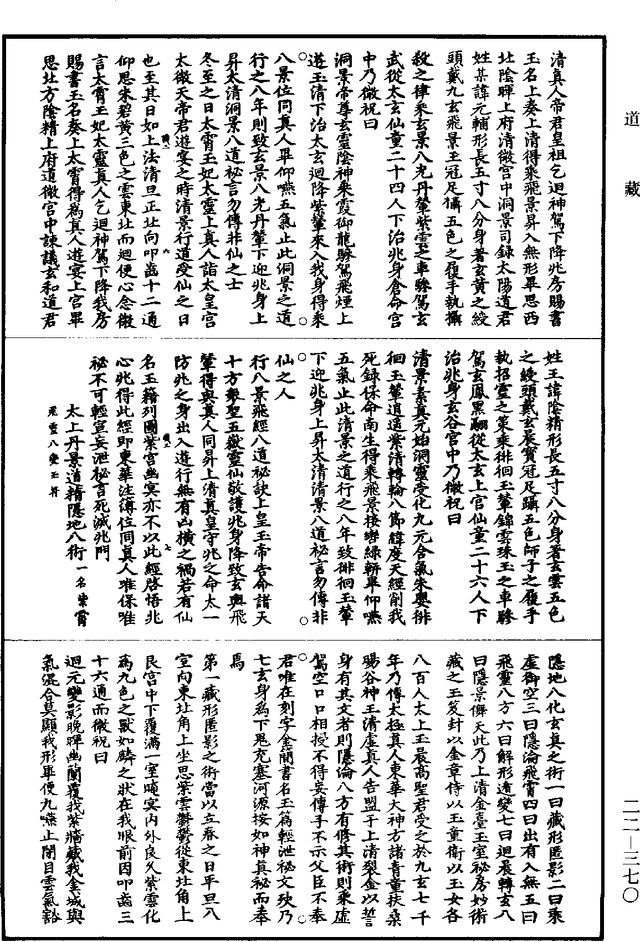 道藏
清真人帝君皇祖乞迴神駕下降兆房賜書
玉名上奏上清得乘飛景昇入無形畢思西
北陰暉上府清微宮中洞景司錄太陽道君
姓某諱元輔形長五寸八分身著玄黃之綬
頭戴九玄飛景玉冠足躡五色之履手執攝
殺之律乘玄景八光丹轝紫雲之車驂駕玄
武從太玄仙童二十四人下治兆身倉命宮
中乃微祝曰
洞景帝尊玄靈陰神乘霞御龍驂駕飛煙上
遊玉清下治太玄迴降紫轝來入我身得乘
八景位同真人畢仰嚥五氣止此洞景之道
行之八年則致玄景八光丹轝下迎兆身上
昇太清洞景八道秘言勿傳非仙之士
冬至之日太霄玉妃太靈上真人詣太皇宮
太微天帝君遊宴之時清景行道受仙之日
也至其日如上法清旦正北向叩齒十二通
仰思朱碧黃三色之雲東北而迴便心念微
言太霄玉妃太靈真人乞迴神駕下降我房
賜書玉名奏上太霄得為真人遊宴上宮畢
思北方陰精上府道微宮中諫議玄和道君
姓王諱陰精形長五寸八分身著玄雲五色
之綬頭戴玄晨寶冠足躡五色師子之履手
執招靈之策乘徘徊玉轝錦雲珠玉之車驂
駕玄鳳黑翮從太玄上官仙童二十六人下
治兆身玄谷宮中乃微祝曰
清景素真元始洞靈變化九元合氣朱嬰徘
徊玉轝逍遙紫清轉輪八節緯度天經削我
死錄保命南生得乘飛景接轡綠軿畢仰嚥
五氣止此清景之道行之八年致徘徊玉轝
下迎兆身上昇太清清景八道祕言勿傳非
仙之人
行八景飛經八道秘訣上皇玉帝告命諸天
十方衆聖五嶽靈仙敬護兆身降致玄輿飛
轝得與真人同昇上清真皇守兆之命太一
防兆之身出入遊行無有凶橫之禍若有仙
名玉籍列圖紫宮幽冥亦不以此經啓悟兆
心兆得此經即東華注簿位同真人唯保唯
祕不可輕宣妄泄秘言死滅兆門
太上丹景道精隱地八術 一名紫霄
飛靈八變玉符
隱地八化玄真之術一曰藏形匿影二曰乘
虛御空三曰隱淪飛霄四曰出有入無五曰
飛靈八方六曰解形遁變七曰迴晨轉玄八
曰隱景儛天此乃上清金臺玉室秘房妙術
藏之玉笈封以金章侍以玉童衛以玉女各
八百人太上玉晨高聖君受之於九玄七千
年乃傳太極真人東華大神方諸青童扶桑
賜谷神王清虛真人告盟于上清裂金以誓
身有其文者則隱淪八方有修其術則乘虛
駕空口口相授不得妄傳手不示父臣不奉
君唯在刻字金閣書名玉篇輕泄秘文殃乃
七玄身為下鬼充塞河源按如神真秘而奉
焉
第一藏形匿影之術當以立春之日平旦入
室向東北角上坐思紫雲鬱鬱從東北角上
艮宮中下覆滿一室晻冥內外良久紫雲化
為九色之獸如麟之狀在我眼前因叩齒三
十六通而微祝曰
迴元變影晚暉幽蘭覆我紫牆藏我金城與
氣混合莫顯我形畢便九嚥止閉目雲氣豁
二二—三七〇